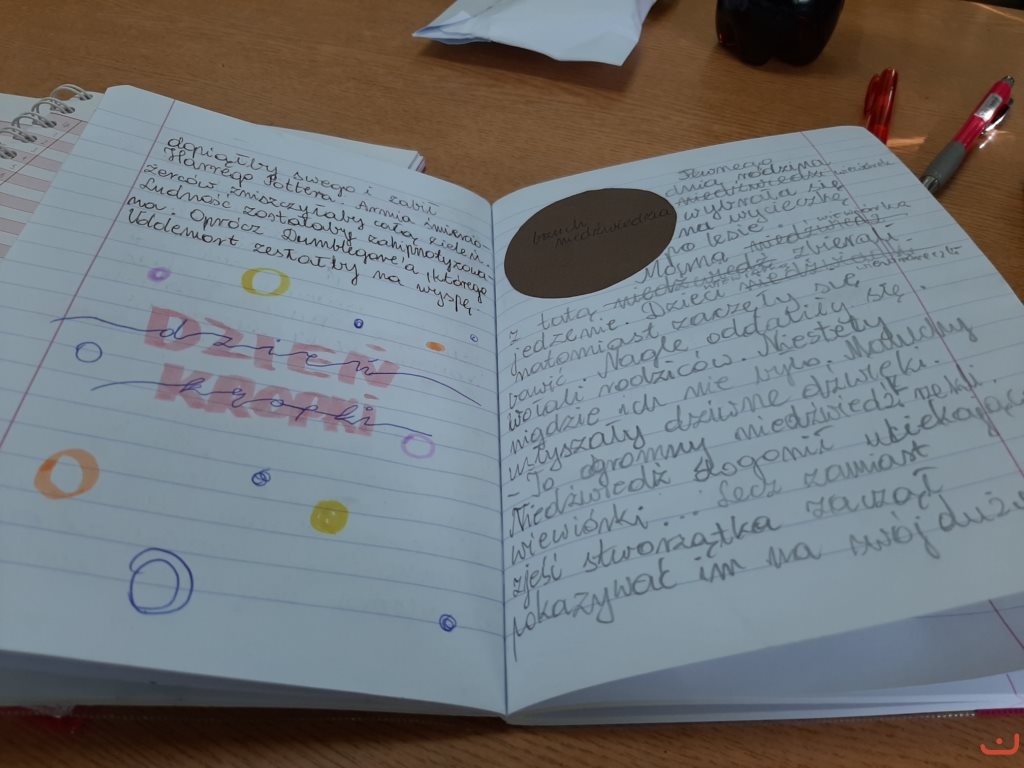 dopiąłby swego i zabił
Harrego Pottera. Armia śmiercio-
żerców zniszczyłaby całą ziemię.
Ludność zostałaby zahipnotyzowa-
na. Oprócz Dumbledore'a, którego
Voldemort zesłałby na wyspę.
DZIEŃ
dzień
KROPKI
kropki
brzuch
niedźwiedzia
Pewnego
dnia rodzina
niedźwiedzi wiewiórek
wybrała się
na wycieczkę
po lesie. wiewiórką
Mama niedźwiedź
z tatą niedźwiedź zbierali
jedzenie. Dzieci wiewiórcząta
natomiast zaczęły się
bawić. Nagle oddaliły się.
Wołali rodziców. Niestety
nigdzie ich nie było. Maluchy
usłyszały dziwne dźwięki.
- To ogromny niedźwiedź rzekli.
Niedźwiedź dogonił uciekające
wiewiórki... Lecz zamiast
zjeść stworzątka zaczął
pokazywać im na swój duży